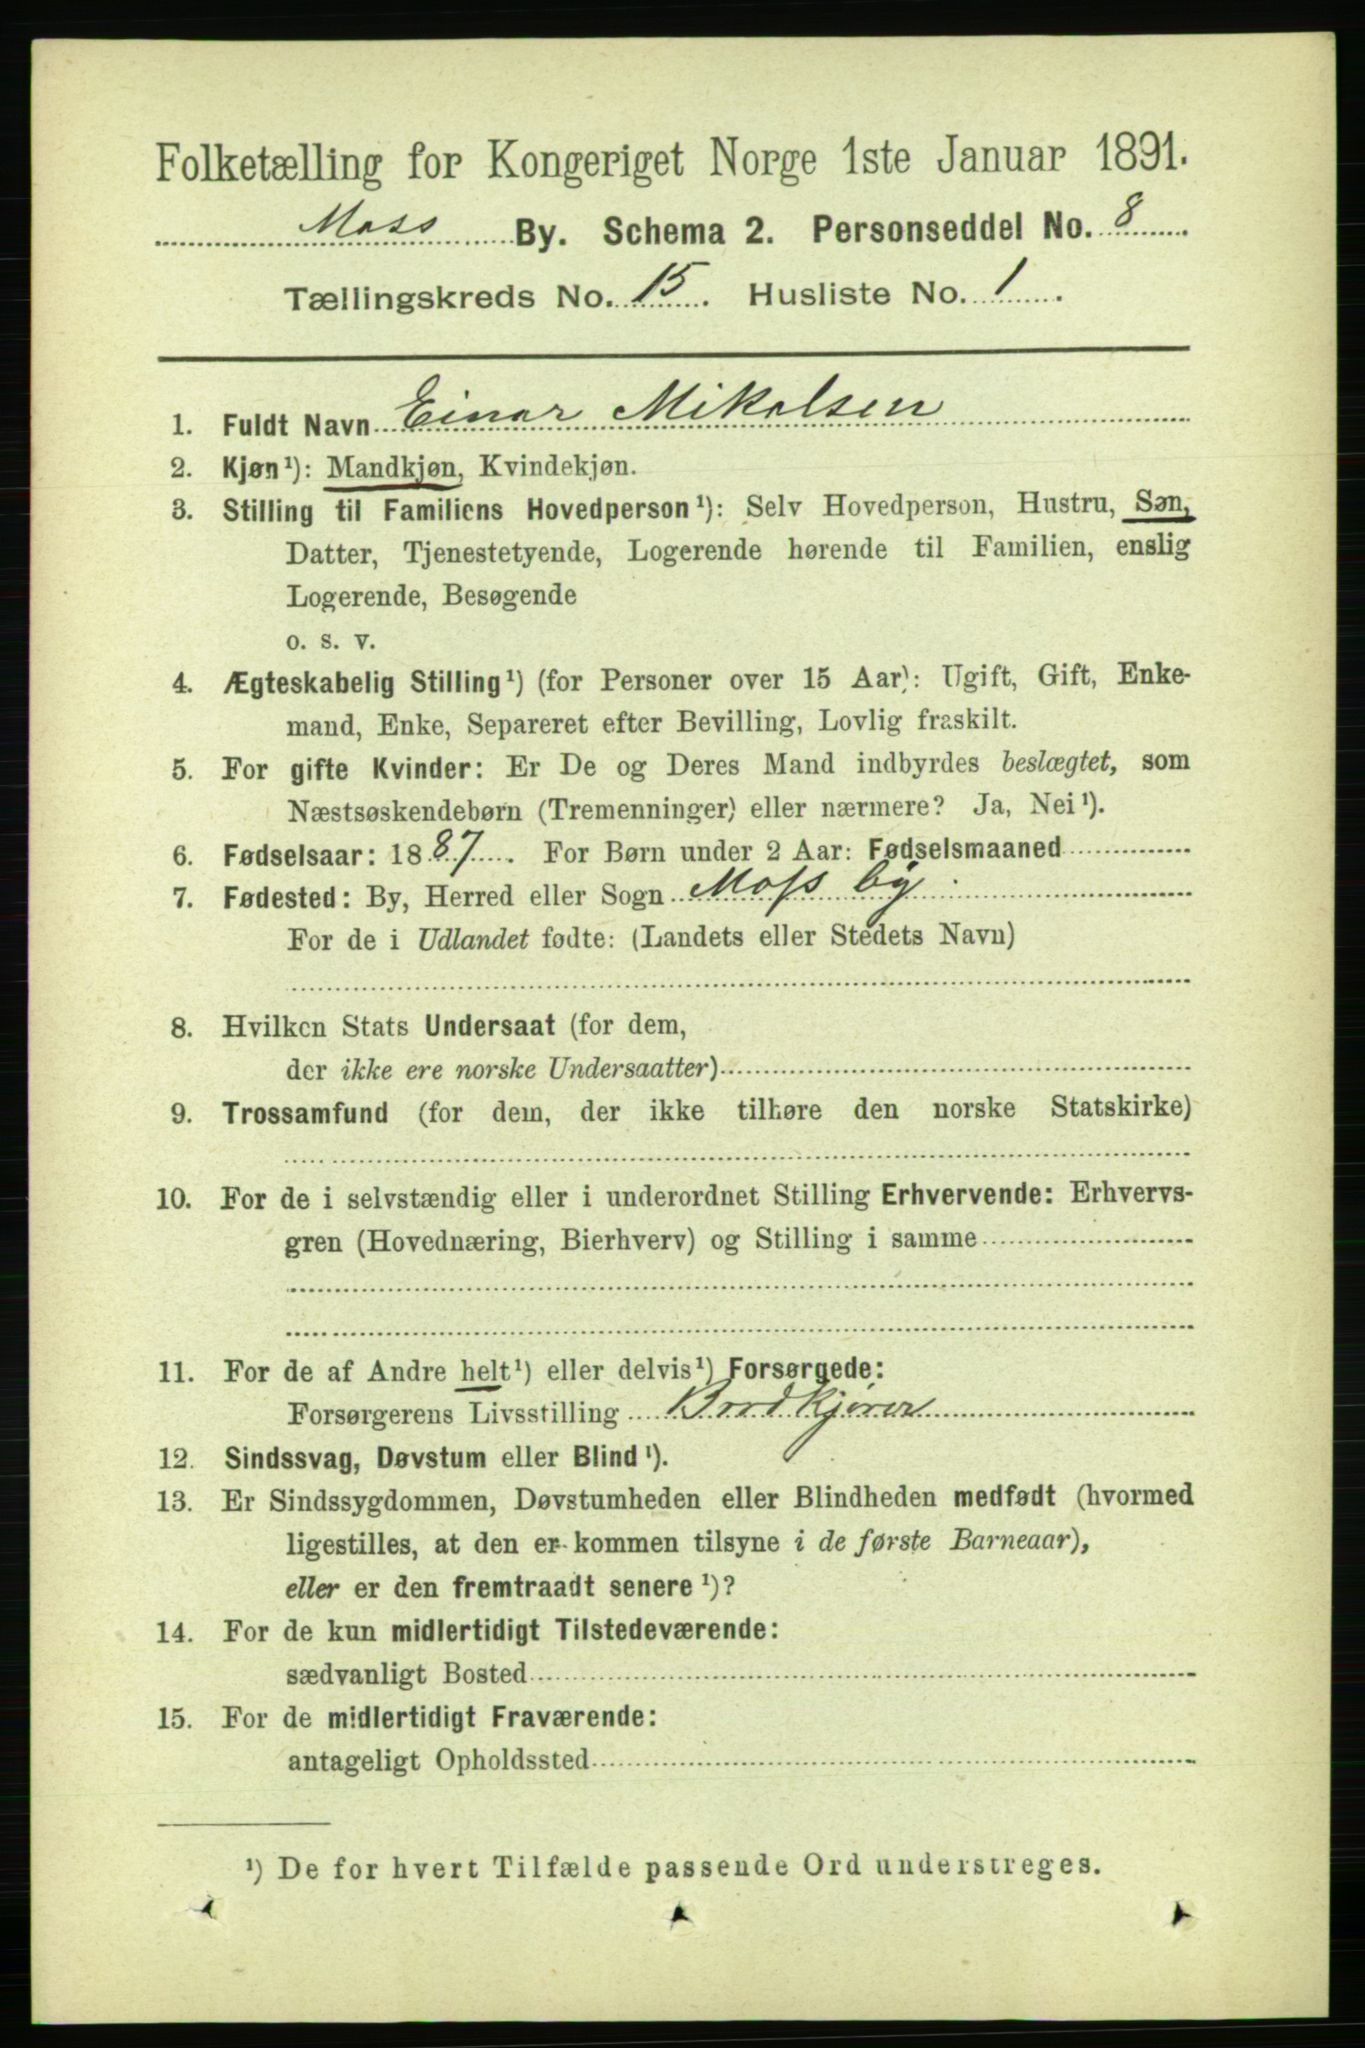 Folketælling for Kongeriget Norge 1ste Januar 1891.
Moss By. Schema 2. Personseddel No. 8
Tællingskreds No. 15. Husliste No. 1.
1. Fuldt Navn Einar Mikalsen
2. Kjøn¹): Mandkjøn, Kvindekjøn.
3. Stilling til Familiens Hovedperson¹): Selv Hovedperson, Hustru, Søn,
Datter, Tjenestetyende, Logerende hørende til Familien, enslig
Logerende, Besøgende
o. s. v.
4. Ægteskabelig Stilling¹) (for Personer over 15 Aar): Ugift, Gift, Enke-
mand, Enke, Separeret efter Bevilling, Lovlig fraskilt.
5. For gifte Kvinder: Er De og Deres Mand indbyrdes beslægtet, som
Næstsøskendebørn (Tremenninger) eller nærmere? Ja, Nei¹).
6. Fødselsaar: 1887. For Børn under 2 Aar: Fødselsmaaned
7. Fødested: By, Herred eller Sogn Moss by.
For de i Udlandet fødte: (Landets eller Stedets Navn)
8. Hvilken Stats Undersaat (for dem,
der ikke ere norske Undersaatter)
9. Trossamfund (for dem, der ikke tilhøre den norske Statskirke)
10. For de i selvstændig eller i underordnet Stilling Erhvervende: Erhvervs-
gren (Hovednæring, Bierhverv) og Stilling i samme
11. For de af Andre helt¹) eller delvis¹) Forsørgede:
Forsørgerens Livsstilling
12. Sindssvag, Døvstum eller Blind¹).
13. Er Sindssygdommen, Døvstumheden eller Blindheden medfødt (hvormed
ligestilles, at den er kommen tilsyne i de første Barneaar),
eller er den fremtraadt senere¹)?
14. For de kun midlertidigt Tilstedeværende:
sædvanligt Bosted
15. For de midlertidigt Fraværende:
antageligt Opholdssted
¹) De for hvert Tilfælde passende Ord understreges.